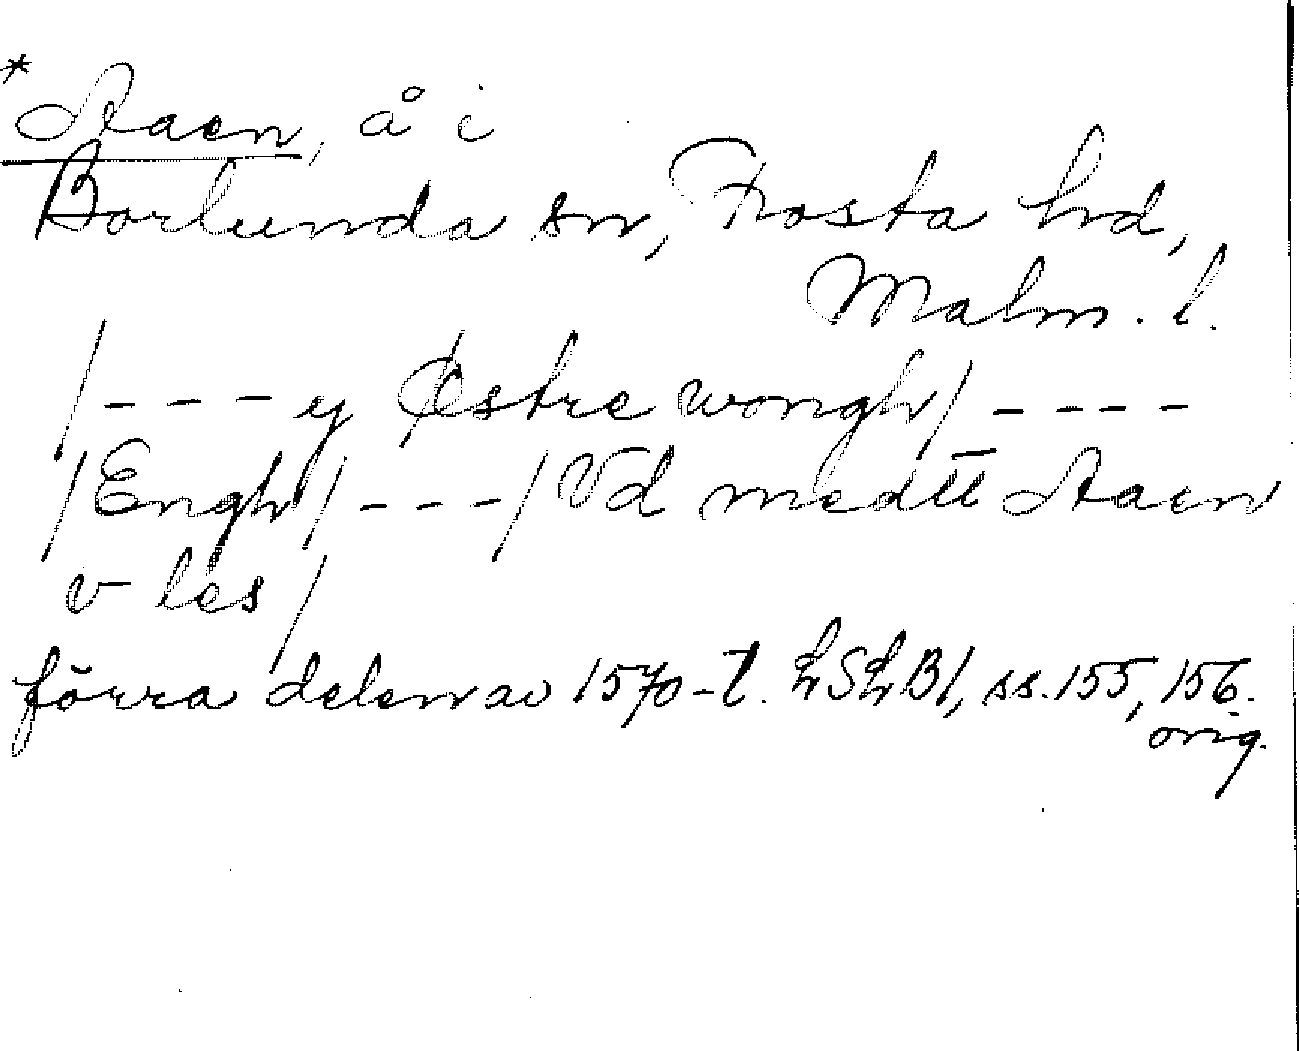 *Aaen, å i
Borlunda sn, Frosta hd,
Malm. l.
/---y Østre wongh/----
/Engh/---/Vd medtt Aaen
v les/
förra delen av 1570-t. LSLB1, ss. 155, 156.
orig.